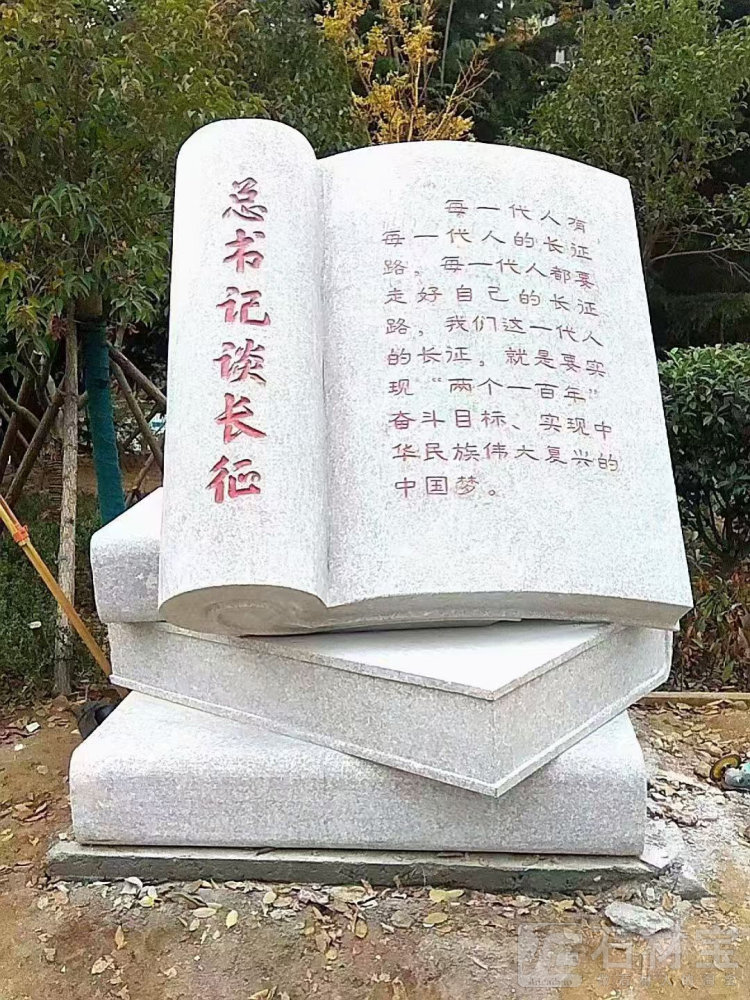 总书记谈长征
每一代人有
每一代人的长征
路，每一代人都要
走好自己的长征
路，我们这一代人
的长征，就是要实
现“两个一百年”
奋斗目标、实现中
华民族伟大复兴的
中国梦。
石材宝